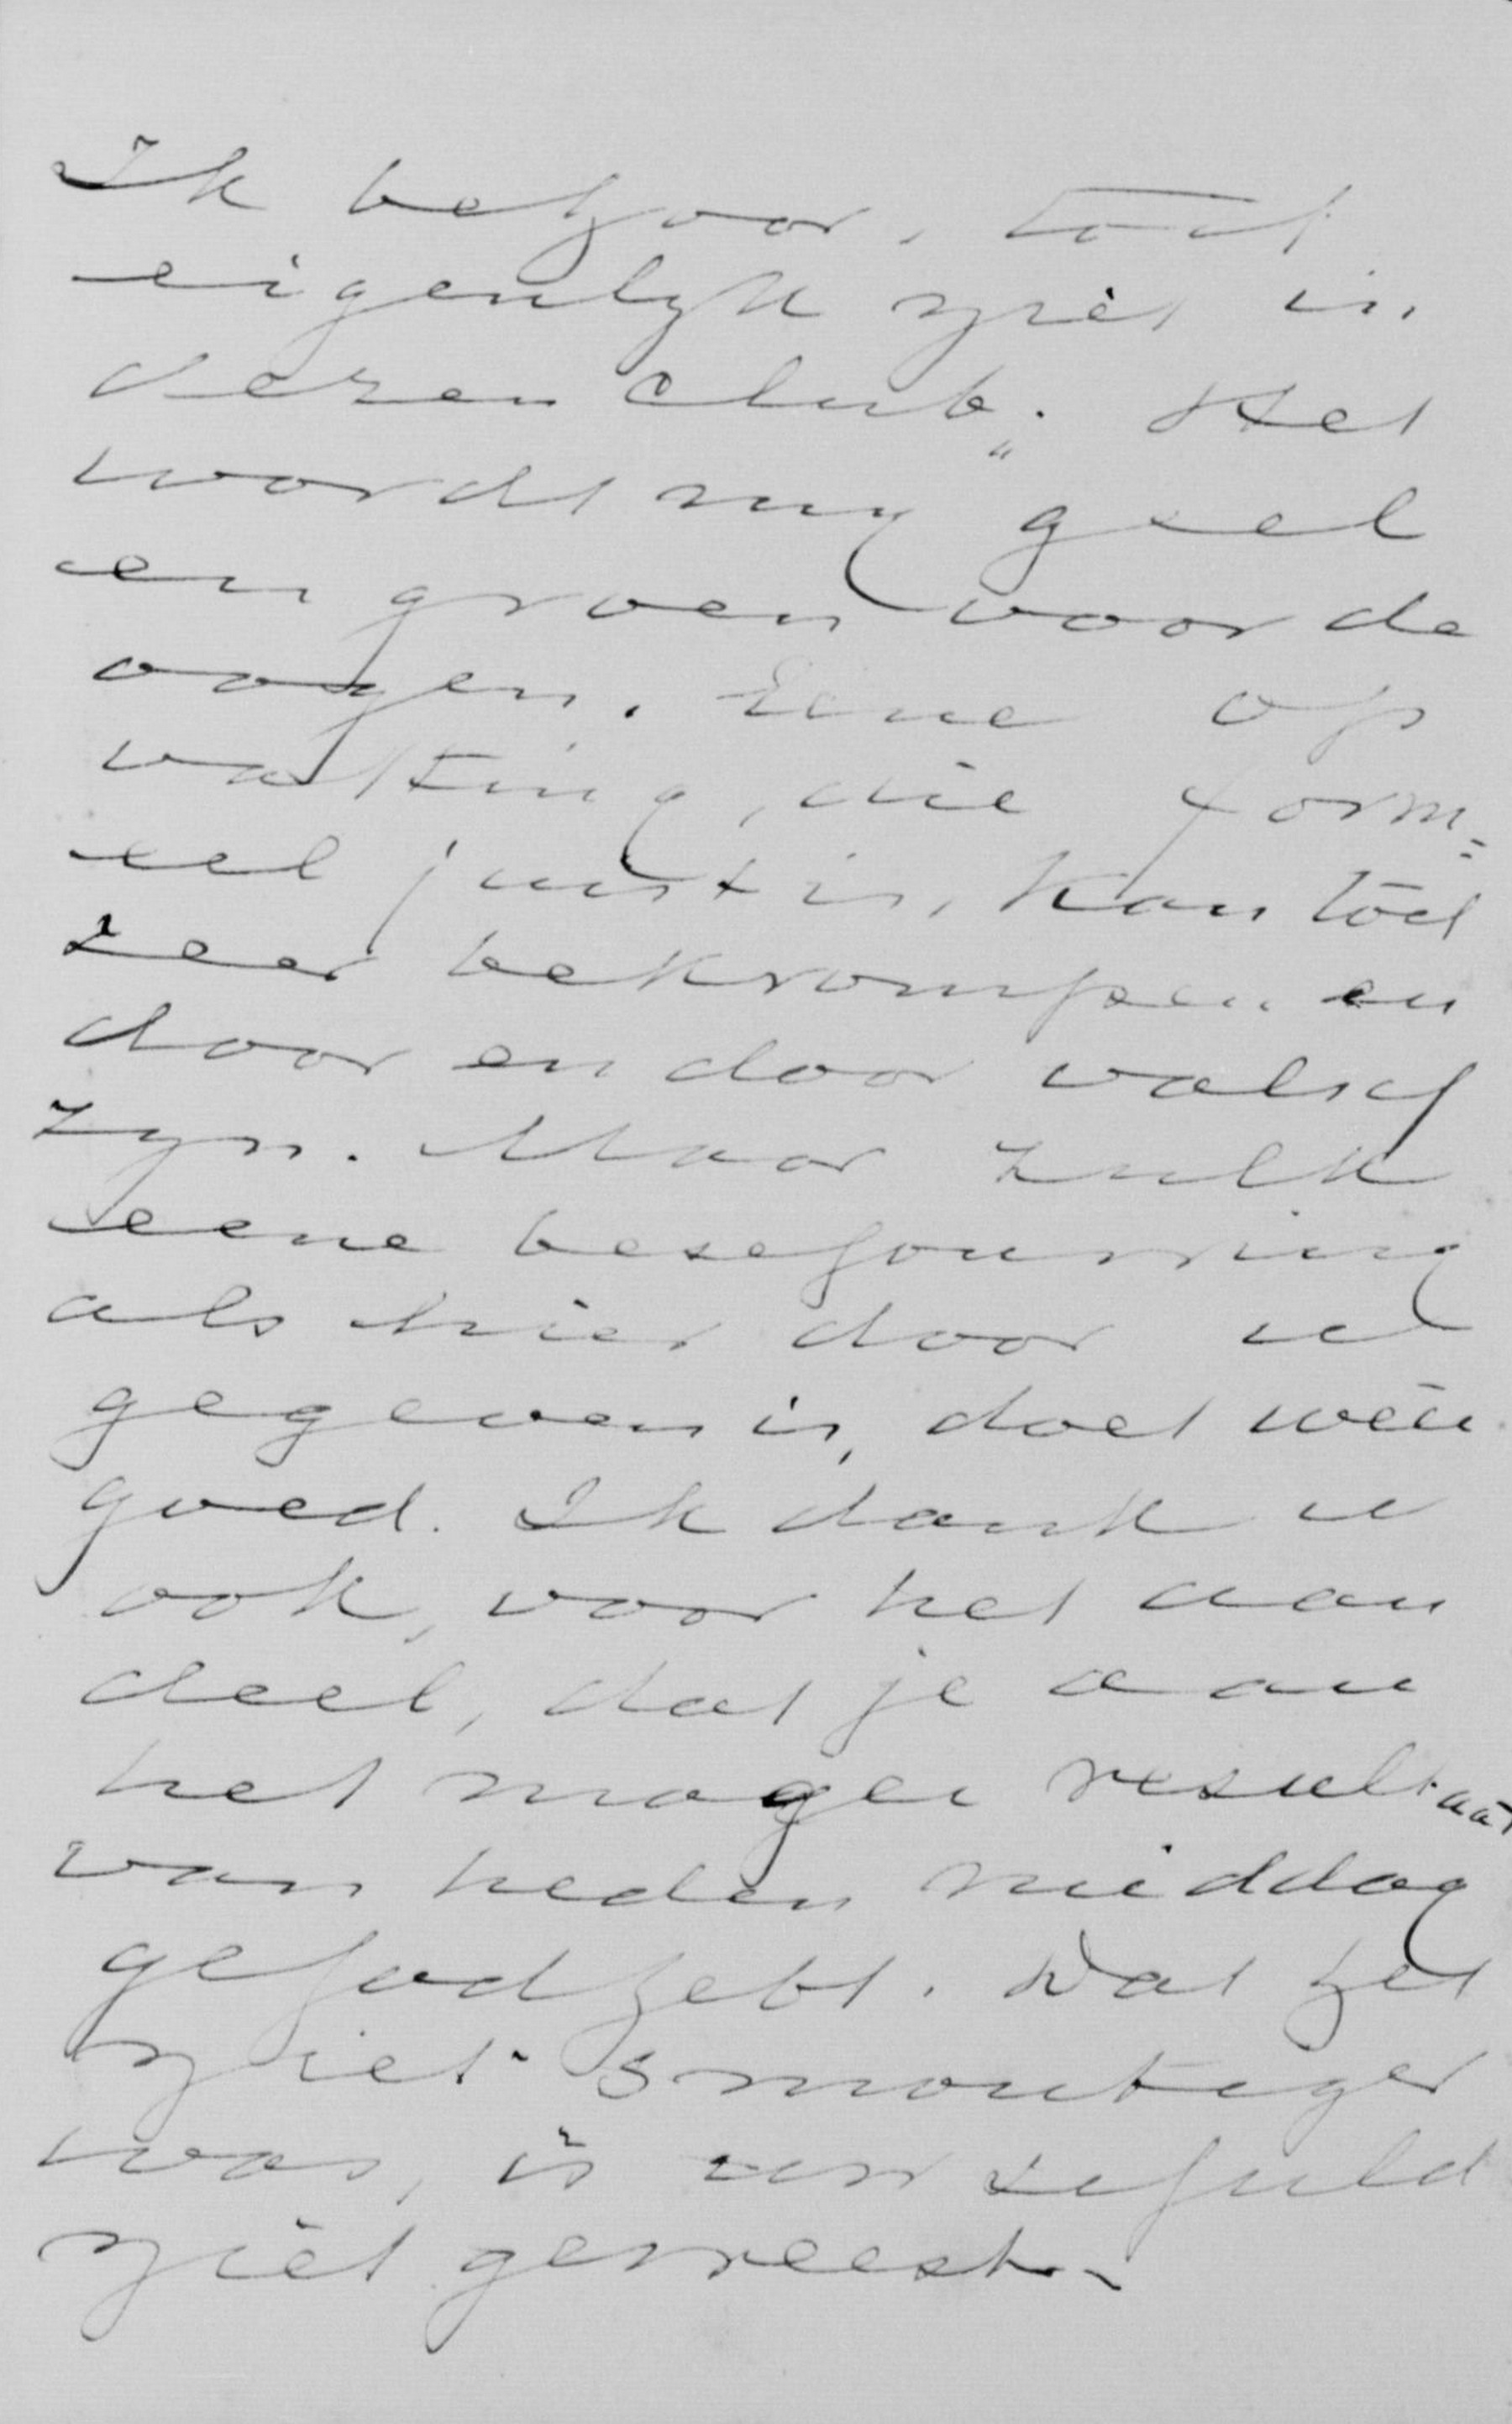 Ik behoor, toch
eigenlyk niet in
dezen club". Het
wordt my geel
en groen voor de
oogen. Eene op
vatting, die form=
eel juist is, kan toch
zeer bekrompen en
door en door valsch
zyn. Maar zulk
eene beschouwing
als hier door u
gegeven is, doet wèl
goed. Ik dank u
ook, voor het aan
deel, dat je aan
het mager resultaat
van heden middag
gehad hebt. Dat het
niet smoutiger
was, is uw schuld
niet geweest.